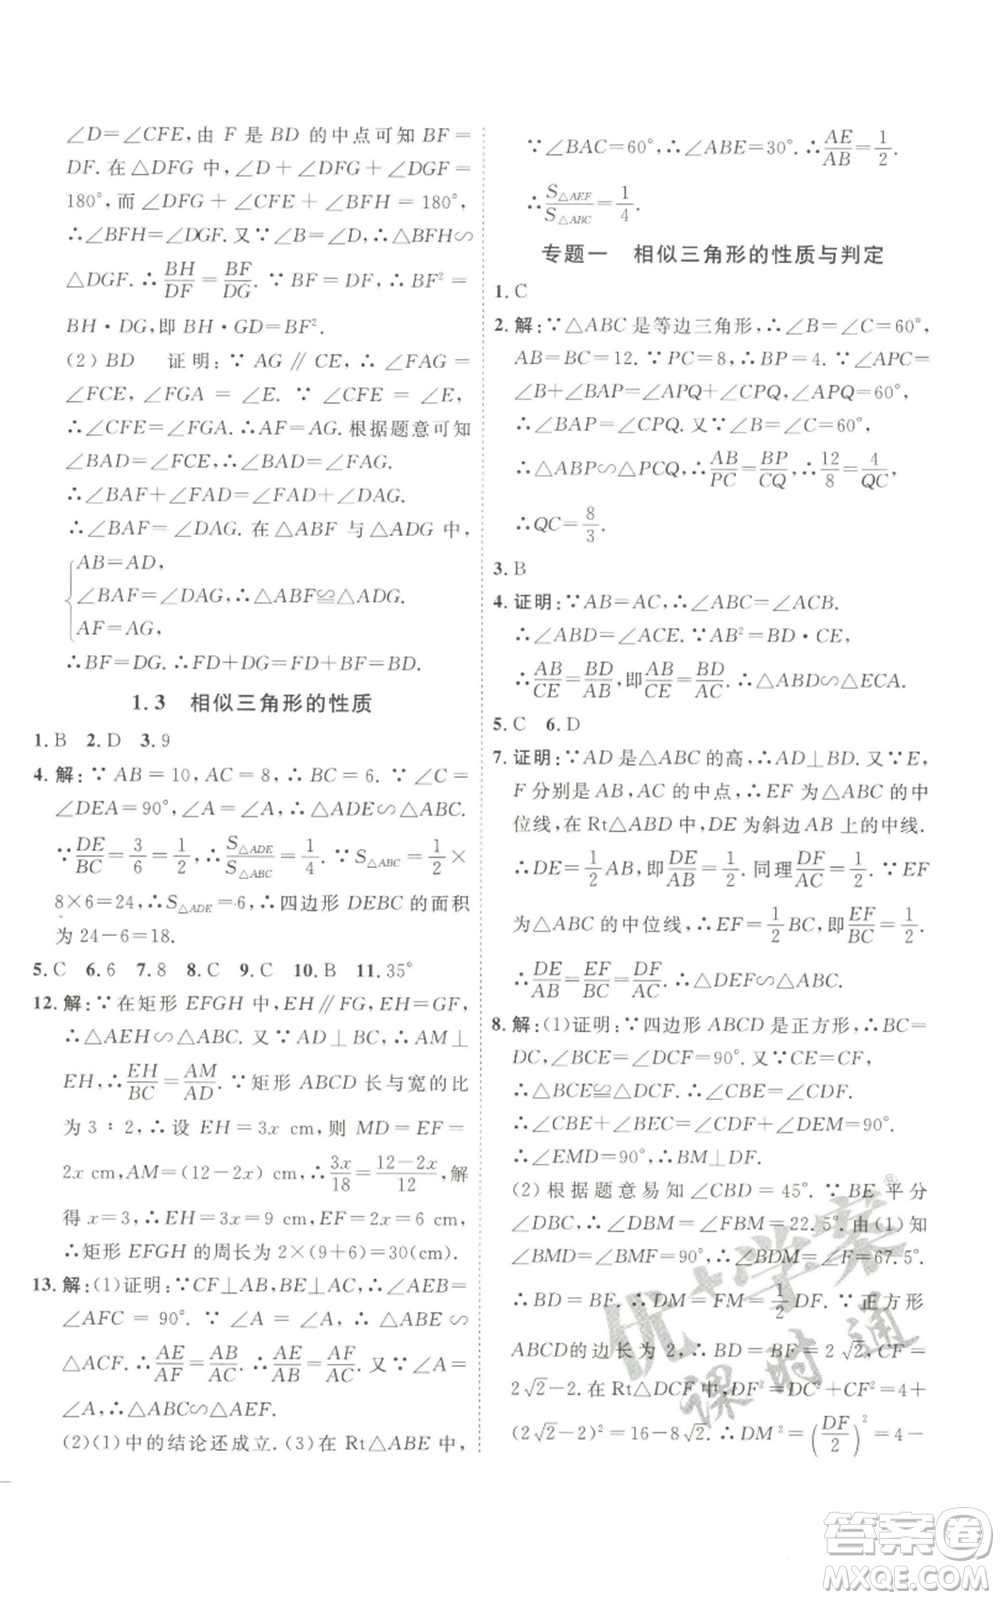 ∠D=∠CFE,由 F 是 BD 的中点可知 BF=
DF. 在 △DFG 中,∠D+∠DFG+∠DGF=
180°,而 ∠DFG+∠CFE+∠BFH=180°,
∴∠BFH=∠DGF. 又∵∠B=∠D,∴△BFH∽
△DGF. ∴BH/DF=BF/DG. ∵BF=DF,∴BF²=
BH·DG,即 BH·GD=BF².
(2) BD 证明:∵AG∥CE,∴∠FAG=
∠FCE,∠FGA=∠E. ∵∠CFE=∠E,
∴∠CFE=∠FGA. ∴AF=AG. 根据题意可知
∠BAD=∠FCE,∴∠BAD=∠FAG.
∴∠BAF+∠FAD=∠FAD+∠DAG.
∴∠BAF=∠DAG. 在 △ABF 与 △ADG 中,
AB=AD,
∠BAF=∠DAG,∴△ABF≌△ADG.
AF=AG,
∴BF=DG. ∴FD+DG=FD+BF=BD.
1.3 相似三角形的性质
1. B 2. D 3. 9
4. 解:∵AB=10,AC=8,∴BC=6. ∵∠C=
∠DEA=90°,∠A=∠A,∴△ADE∽△ABC.
∵DE/BC=3/6=1/2,∴S△ADE/S△ABC=1/4. ∵S△ABC=1/2×
8×6=24,∴S△ADE=6,∴四边形 DEBC 的面积
为 24-6=18.
5. C 6. 6 7. 8 8. C 9. C 10. B 11. 35°
12. 解:∵在矩形 EFGH 中,EH∥FG,EH=GF,
∴△AEH∽△ABC. 又∵AD⊥BC,∴AM⊥
EH,∴EH/BC=AM/AD. ∵矩形 ABCD 长与宽的比
为 3:2,∴设 EH=3x cm,则 MD=EF=
2x cm,AM=(12-2x) cm,∴3x/18=(12-2x)/12,解
得 x=3,∴EH=3x=9(cm),EF=2x=6(cm).
∴矩形 EFGH 的周长为 2×(9+6)=30(cm).
13. 解:(1)证明:∵CF⊥AB,BE⊥AC,∴∠AEB=
∠AFC=90°. ∵∠A=∠A,∴△ABE∽
△ACF. ∴AE/AF=AB/AC. ∴AE/AB=AF/AC. 又∵∠A=
∠A,∴△AEF∽△ABC.
(2)(1)中的结论还成立. (3)在 Rt△ABE 中,
∵∠BAC=60°,∴∠ABE=30°. ∴AE/AB=1/2.
∴S△AEF/S△ABC=1/4.
专题一 相似三角形的性质与判定
1. C
2. 解:∵△ABC 是等边三角形,∴∠B=∠C=60°,
AB=BC=12. ∵PC=8,∴BP=4. ∵∠APC=
∠B+∠BAP=∠APQ+∠CPQ,∠APQ=60°,
∴∠BAP=∠CPQ. 又∵∠B=∠C=60°,
∴△ABP∽△PCQ,∴AB/PC=BP/CQ,∴12/8=4/QC,
∴QC=8/3.
3. B
4. 证明:∵AB=AC,∴∠ABC=∠ACB.
∴∠ABD=∠ACE. ∵AB²=BD·CE,
∴AB/CE=BD/AB,即AB/CE=BD/AC. ∴△ABD∽△ECA.
5. C 6. D
7. 证明:∵AD 是 △ABC 的高,∴AD⊥BD. 又∵E,
F 分别是 AB,AC 的中点,∴EF 为 △ABC 的中
位线,在 Rt△ABD 中,DE 为斜边 AB 上的中线.
∴DE=1/2AB,即DE/AB=1/2. 同理DF/AC=1/2. ∵EF
为 △ABC 的中位线,∴EF=1/2BC,即EF/BC=1/2.
∴DE/AB=EF/BC=DF/AC. ∴△DEF∽△ABC.
8. 解:(1)证明:∵四边形 ABCD 是正方形,∴BC=
DC,∠BCE=∠DCF=90°. 又∵CE=CF,
∴△BCE≌△DCF. ∴∠CBE=∠CDF.
∴∠CBE+∠BEC=∠CDF+∠DEM=90°.
∴∠EMD=90°,∴BM⊥DF.
(2)根据题意易知∠CBD=45°. ∵BE 平分
∠DBC. ∴∠DBM=∠FBM=22.5°. 由(1)知
∠BMD=∠BMF=90°,∴∠BDM=∠F=67.5°.
∴BD=BF. ∴DM=FM=1/2DF. ∵正方形
ABCD的边长为 2,∴BD=BF=2√2,∴CF=
2√2-2. 在 Rt△DCF 中,DF²=DC²+CF²=4+
(2√2-2)²=16-8√2. ∴DM²=(DF/2)²=4-
优+学案
课时通
答案圈
MXQE.COM